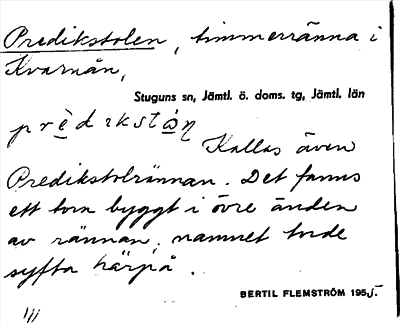 Predikstolen, timmerränna i
Kvarnån,
Stuguns sn, Jämtl. ö. doms. tg, Jämtl. län
prèdɩkstɷ̀n
Kallas även
Predikstolrännan. Det fanns
ett torn byggt i övre änden
av rännan, namnet torde
syfta härpå.
BERTIL FLEMSTRÖM 1955.